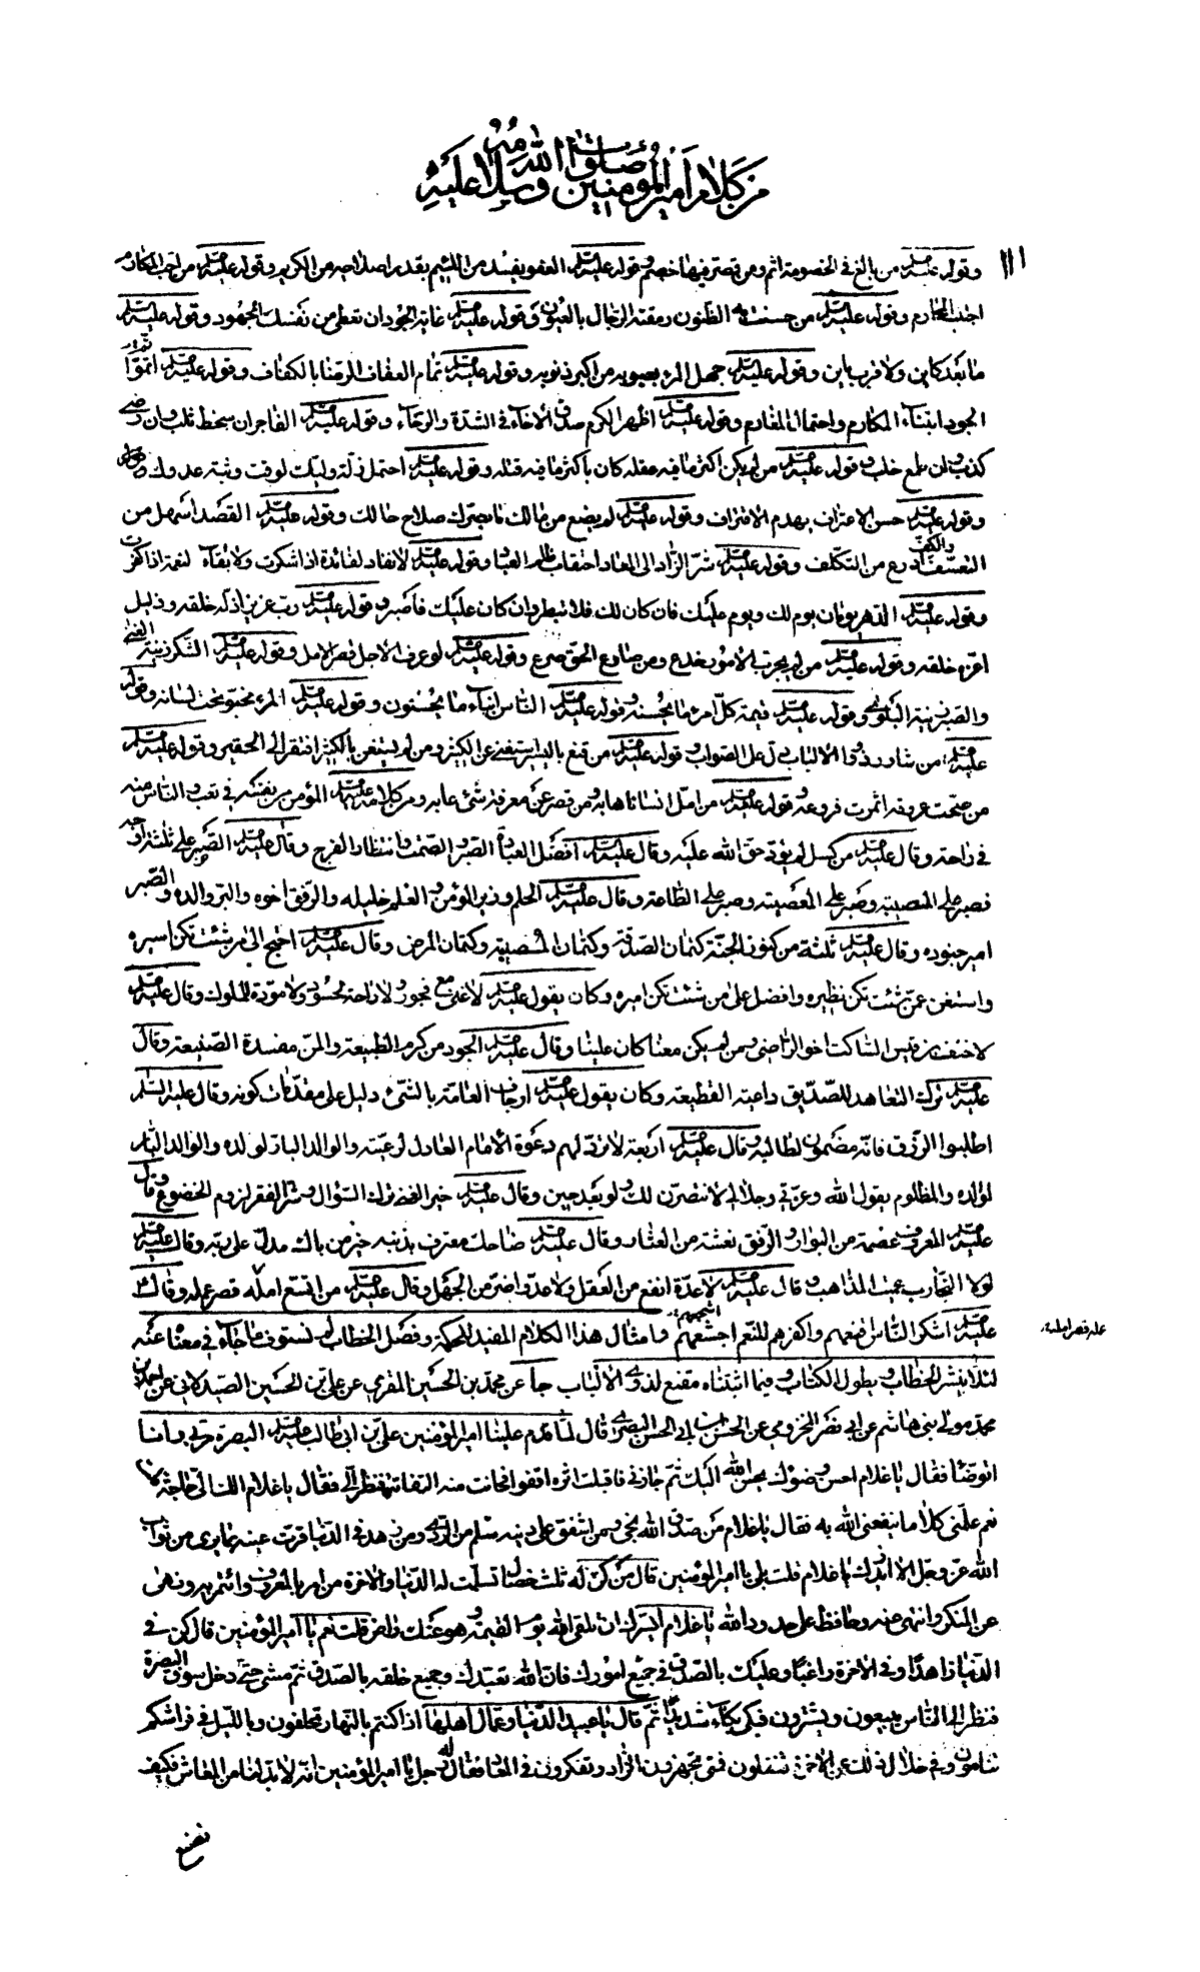 من كلام أمير المؤمنين صلوات الله وسلامه عليه
١١١
وقوله عليه السلم من بالغ في الخصومة اثم ومن قصر فيها خصم وقوله عليه السلم العفو يفسد من اللئيم بقدر اصلاحه من الكريم وقوله عليه السلم من احب المكارم
اجتنب المحارم وقوله عليه السلم من حسنت به الظنون رمقته الرجال بالعيون وقوله عليه السلم غاية الجود ان تعطى من نفسك المجهود وقوله عليه السلم
ما بعد كاين ولا قرب باين وقوله عليه السلم جهل المرء بعيوبه من اكبر ذنوبه وقوله عليه السلم تمام العفاف الرضا بالكفاف وقوله عليه السلم اتم
الجود ابتناء المكارم واحتمال المغارم وقوله عليه السلم اظهر الكرم صدق الاخاء في الشدة والرخاء وقوله عليه السلم الفاجر ان سخط ثلب وان رضى
كذب وان طمع خلب وقوله عليه السلم من لم يكن اكثر ما فيه عقله كان باكثر ما فيه قتله وقوله عليه السلم احتمل زلة وليك لوقت وثبة عدوك
وقوله عليه السلم حسن الاعتراف يهدم الاقتراف وقوله عليه السلم لم يضع من مالك ما بصرك صلاح حالك وقوله عليه السلم القصد اسهل من
التعسف والكف اورع من التكلف وقوله عليه السلم شر الزاد الى المعاد احتقاب ظلم العباد وقوله عليه السلم لا نفاد لفائدة اذا شكرت ولا بقاء لنعمة اذا كفرت
وقوله عليه السلم الدهر يومان يوم لك ويوم عليك فان كان لك فلا تبطر وان كان عليك فاصبر وقوله عليه السلم رب عزيز اذله خلقه وذليل
اعزه خلقه وقوله عليه السلم من لم يجرب الامور خدع ومن صارع الحق صرع وقوله عليه السلم لو عرف الاجل قصر الامل وقوله عليه السلم الشكر زينة الغنى
والصبر زينة البلوى وقوله عليه السلم قيمة كل امرء ما يحسنه وقوله عليه السلم الناس ابناء ما يحسنون وقوله عليه السلم المرء مخبو تحت لسانه وقوله
عليه السلم من شاور ذوى الالباب دل على الصواب وقوله عليه السلم من قنع باليسير استغنى عن الكثير ومن لم يستغن بالكثير افتقر الى الحقير وقوله عليه السلم
من صحت عروقه اثمرت فروعه وقوله عليه السلم من امل انسانا هابه ومن قصر عن معرفة شئ عابه ومن كلامه عليه السلم المؤمن من نفسه في تعب والناس منه
في راحة وقال عليه السلم من كسل لم يؤد حق الله عليه وقال عليه السلم افضل العبادة الصبر والصمت وانتظار الفرج وقال عليه السلم الصبر على ثلثة اوجه
فصبر على المصيبة وصبر على المعصية وصبر على الطاعة وقال عليه السلم الحلم وزير المؤمن والعلم خليله والرفق اخوه والبر والده والصبر
امير جنوده وقال عليه السلم ثلثة من كنوز الجنة كتمان الصدقة وكتمان المصيبة وكتمان المرض وقال عليه السلم احتج الى من شئت تكن اسيره
واستغن عمن شئت تكن نظيره وافضل على من شئت تكن اميره وكان يقول عليه السلم لا غنى مع فجور ولا راحة لحسود ولا مودة لملوك وقال عليه السلم
لاحنف بن قيس الساكت اخو الراضي ومن لم يكن معنا كان علينا وقال عليه السلم الجود من كرم الطبيعة والمن مفسدة الصنيعة وقال
عليه السلم ترك التعاهد للصديق داعية القطيعة وكان يقول عليه السلم ارجاف العامة بالشئ دليل على مقدمات كونه وقال عليه السلم
اطلبوا الرزق فانه مضمون لطالبه وقال عليه السلم اربعة لا ترد لهم دعوة الامام العادل لرعيته والوالد البار لولده والولد البار
لوالده والمظلوم يقول الله وعزتي وجلالي لانتصرن لك ولو بعد حين وقال عليه السلم خير الغنى ترك السؤال وشر الفقر لزوم الخضوع وقال
عليه السلم المعروف عصمة من البوار والرفق نعشة من العثار وقال عليه السلم ضاحك معترف بذنبه خير من باك مدل على ربه وقال عليه السلم
لولا التجارب عميت المذاهب وقال عليه السلم لا عدة انفع من العقل ولا عدو اضر من الجهل وقال عليه السلم من اتسع امله قصر عمله وقال
عليه السلم اشكر الناس اقنعهم واكفرهم للنعم اجشعهم وامثال هذا الكلام المفيد للحكمة وفصل الخطاب لم نستوف ما جاء في معناه عنه
لئلا ينتشر الخطاب ويطول الكتاب وفيما اثبتناه مقنع لذوى الالباب جاء عن محمد بن الحسين المقري عن علي بن الحسين الصيدلاني عن احمد بن
محمد مولى بنى هاشم عن ابي نصر المخزومي عن الحسن بن ابي الحسن البصرى قال لما قدم علينا امير المؤمنين على بن ابي طالب عليه السلم البصرة مر بي وانا
اتوضأ فقال يا غلام احسن وضوئك يحسن الله اليك ثم جازني فاقبلت اقفو اثره فحانت منه التفاتة فنظر الى فقال يا غلام الك الى حاجة قلت
نعم علمني كلاما ينفعني الله به فقال يا غلام من صدق الله نجى ومن اشفق على دينه سلم من الردى ومن زهد في الدنيا قرت عينه بما يرى من ثواب
الله عز وجل الا ازيدك يا غلام قلت بلى يا امير المؤمنين قال من كن له ثلث خصال سلمت له الدنيا والاخرة من امر بالمعروف وائتمر به ونهى
عن المنكر وانتهى عنه وحافظ على حدود الله يا غلام ايسرك ان تلقى الله يوم القيمة وهو عنك راض قلت نعم يا امير المؤمنين قال كن في
الدنيا زاهدا وفي الاخرة راغبا وعليك بالصدق في جميع امورك فان الله تعبدك وجميع خلقه بالصدق ثم مشى حتى دخل سوق البصرة
فنظر الى الناس يبيعون ويشترون فبكى بكاء شديدا ثم قال يا عبيد الدنيا وعمال اهلها اذا كنتم بالنهار تحلفون وبالليل في فراشكم
تنامون وفي خلال ذلك عن الاخرة تغفلون فمتى تجهزون الزاد وتفكرون في المعاد فقال له رجل يا امير المؤمنين انه لا بد لنا من المعاش فكيف
نصنع